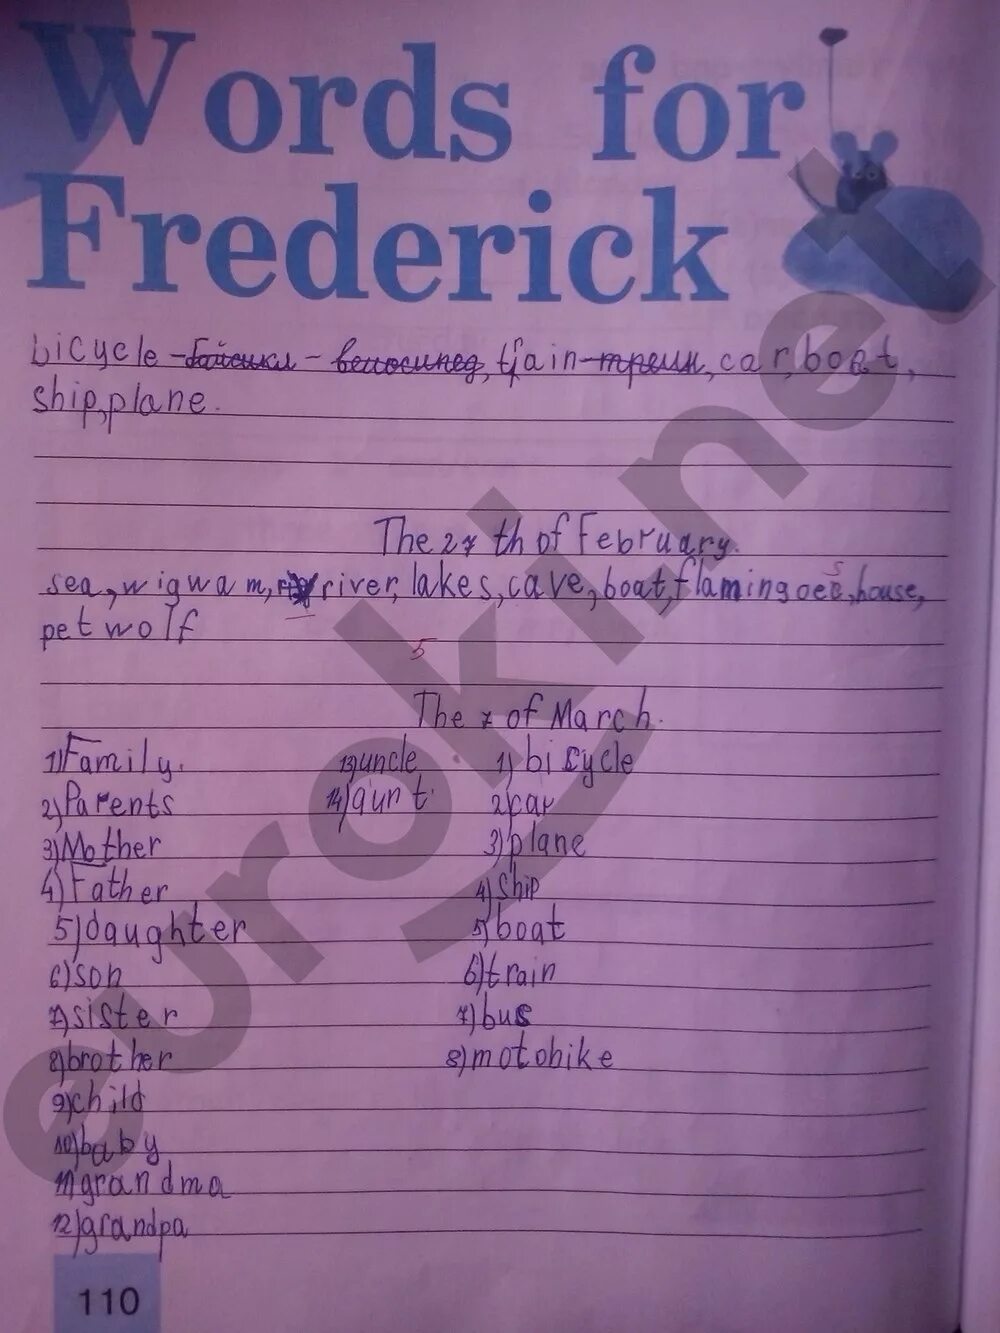 Words for
Frederick
bicycle - байсикл - велосипед, train - трейн, car, boat,
ship, plane.
The 27 th of February.
sea, wigwam, river, lakes, cave, boat, flamingoes, house,
pet wolf
5
The 7 of March.
1) Family. 13) uncle 1) bicycle
2) Parents 14) aunt. 2) car
3) Mother 3) plane
4) Father 4) ship
5) daughter 5) boat
6) son 6) train
7) sister 7) bus
8) brother 8) motobike
9) child
10) baby
11) grandma
12) grandpa
110
euroki.net